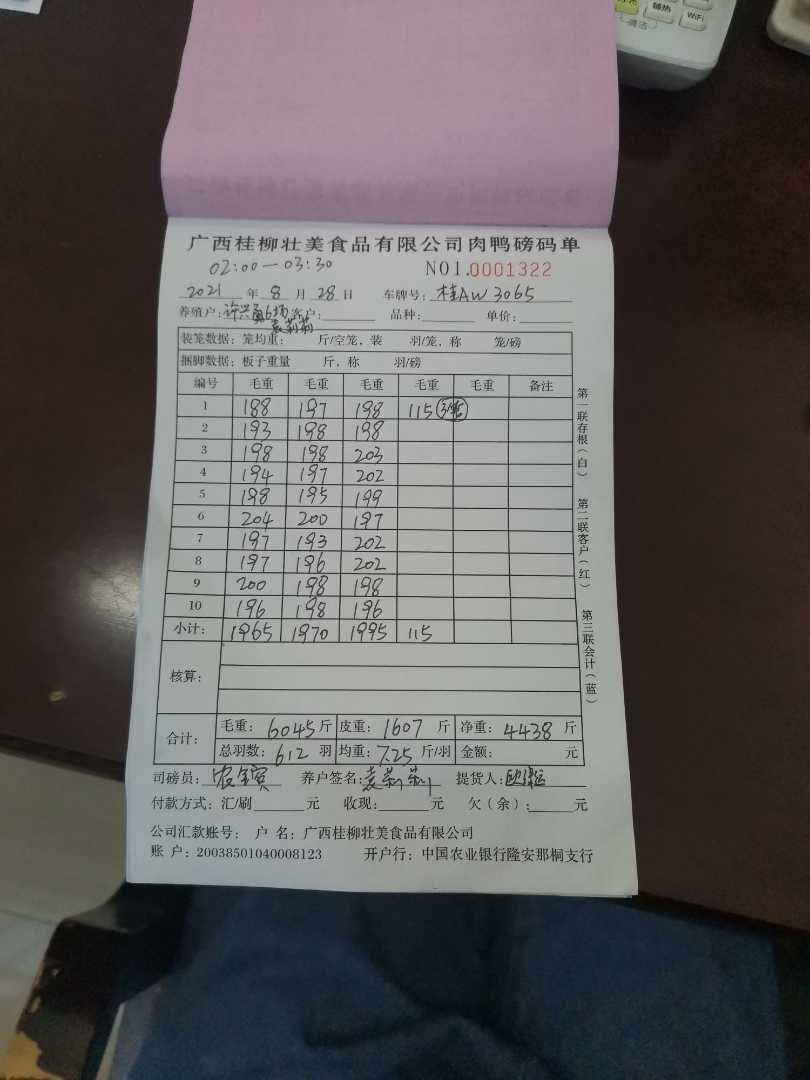 辅热
WiFi
清洁
广西桂柳壮美食品有限公司肉鸭磅码单
02:00—03:30 NO1.0001322
2021 年 8 月 28 日 车牌号: 桂AW3065
养殖户: 许兴 6场 客户: 品种: 单价:
袁莉莉
装笼数据: 笼均重: 斤/空笼, 装 羽/笼, 称 笼/磅
捆脚数据: 板子重量 斤, 称 羽/磅
编号 毛重 毛重 毛重 毛重 毛重 备注
1 188 197 198 115
2 193 198 198
3 198 198 203
4 194 197 202
5 198 195 199
6 204 200 197
7 197 193 202
8 197 196 202
9 200 198 198
10 196 198 196
小计: 1965 1970 1995 115
核算:
合计: 毛重: 6045 斤 皮重: 1607 斤 净重: 4438 斤
总羽数: 612 羽 均重: 7.25 斤/羽 金额: 元
司磅员: 养户签名: 袁莉莉 提货人:
付款方式: 汇/刷 元 收现: 元 欠(余): 元
公司汇款账号: 户 名: 广西桂柳壮美食品有限公司
账 户: 20038501040008123 开户行: 中国农业银行隆安那桐支行
第一联存根(白)
第二联客户(红)
第三联会计(蓝)